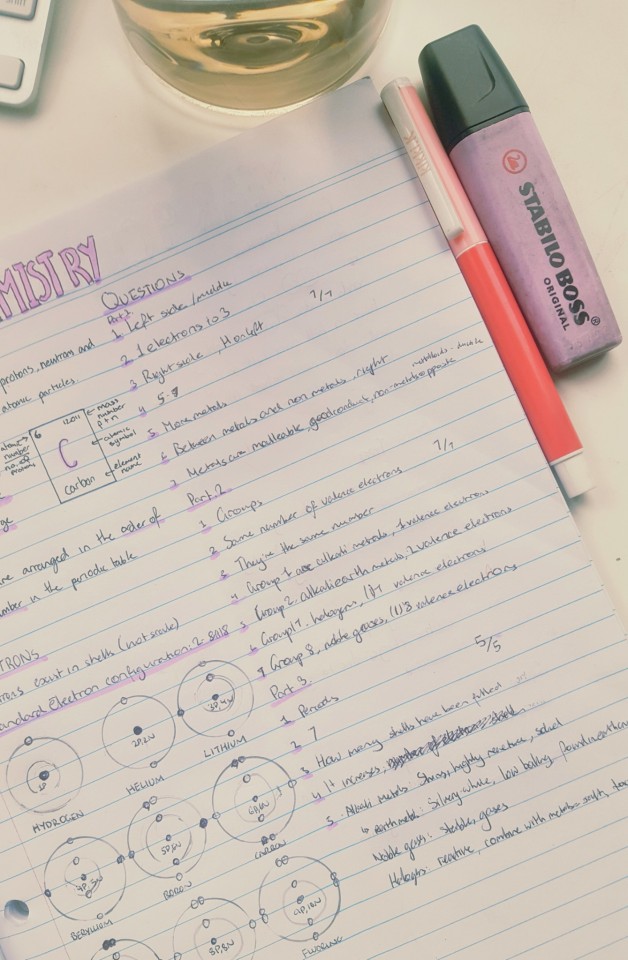 MISTRY
protons, neutrons and
atomic particles.
6 12.011
C
carbon
mass number p+n
atomic symbol
element name
atomic number no. of protons
are arranged in the order of
number in the periodic table
TRONS
exist in shells (not scale)
Standard electron configuration: 2
HYDROGEN
2P, 2N
HELIUM
LITHIUM
BERYLLIUM
5P, 6N
BORON
6P, 6N
CARBON
8P, 8N
9P, 10N
FLUORINE
QUESTIONS
Part 1
1 Left side / middle
7/7
2 1 electrons to 3
3 Right side, H on left
4 5.7
5 More metals
6 Between metals and non metals, right
7 Metals are malleable, good conducts, non-metals opposite
Part 2
7/7
1 Groups
2 Same number of valence electrons
3 They're the same number
4 Group 1 are alkali metals, 1 valence electron
5 Group 2. alkali earth metals, 2 valence electrons
6 Group 17. halogens, (1)7 valence electrons
7 Group 8, noble gases, (1)8 valence electrons
Part 3.
5/5
1 Periods
2 7
3 How many shells have been filled
4 It increases,
5. Alkali Metals: Shiny, highly reactive, solid
Earth metal: silvery-white, low boiling
Noble gases: stable, gases
Halogens: reactive, combine with metals
STABILO BOSS®
ORIGINAL